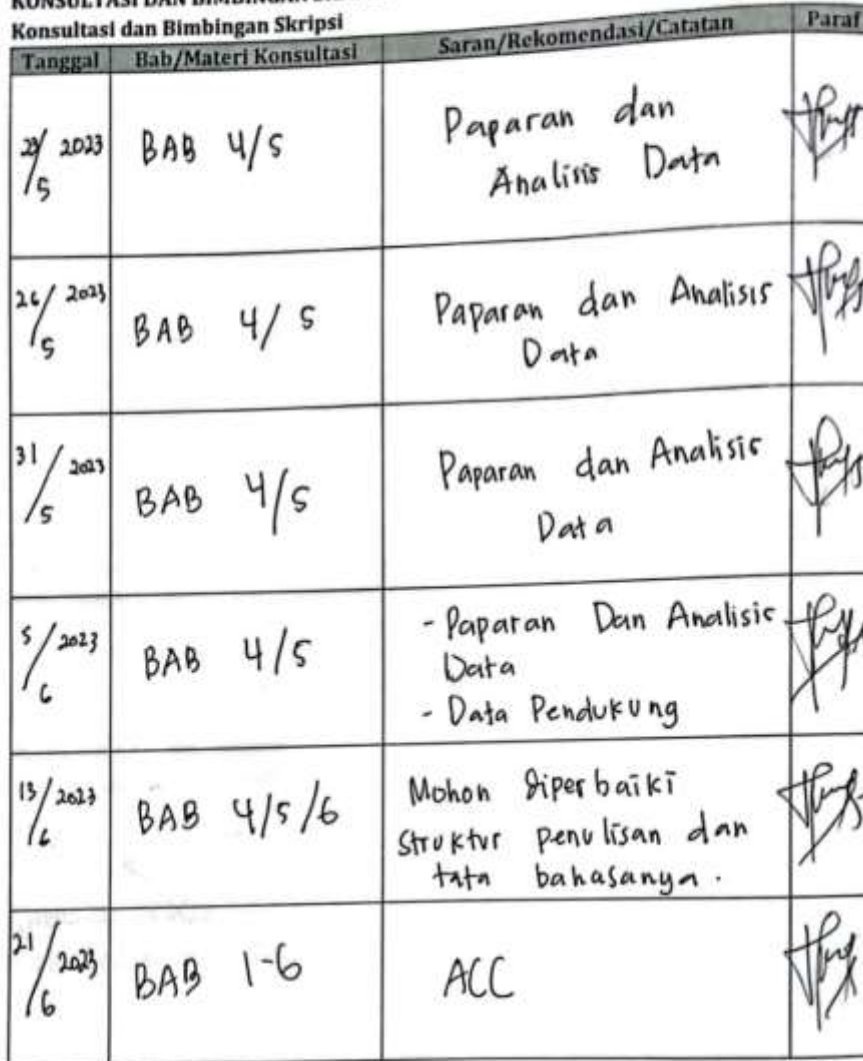 KONSULTASI DAN BIMBINGAN
Konsultasi dan Bimbingan Skripsi
Tanggal Bab/Materi Konsultasi Saran/Rekomendasi/Catatan Paraf
23/5 2023 BAB 4/5 Paparan dan
Analisis Data
26/5 2023 BAB 4/5 Paparan dan Analisis
Data
31/5 2023 BAB 4/5 Paparan dan Analisis
Data
5/6 2023 BAB 4/5 - Paparan Dan Analisis
Data
- Data Pendukung
13/6 2023 BAB 4/5/6 Mohon diperbaiki
struktur penulisan dan
tata bahasanya.
21/6 2023 BAB 1-6 ACC